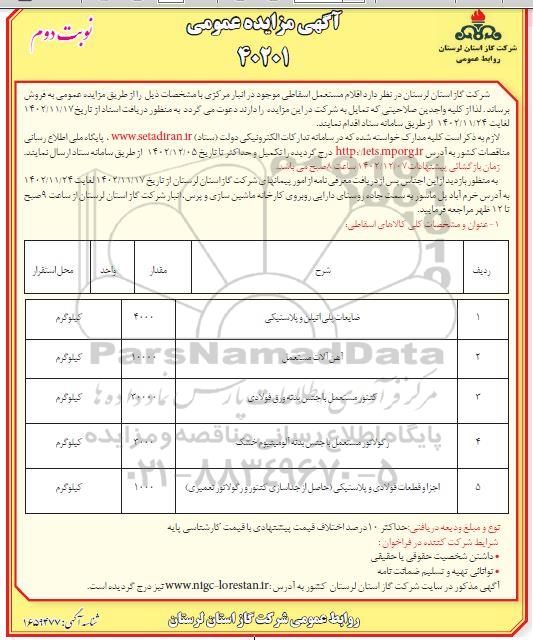 آگهی مزایده عمومی
نوبت دوم
۴۰۲۰۱
شرکت گاز استان لرستان
روابط عمومی
شرکت گاز استان لرستان در نظر دارد اقلام مستعمل اسقاطی موجود در انبار مرکزی با مشخصات ذیل را از طریق مزایده عمومی به فروش
برساند. لذا از کلیه واجدین صلاحیتی که تمایل به شرکت در این مزایده را دارند دعوت می گردد به منظور دریافت اسناد از تاریخ ۱۴۰۲/۱۱/۱۷
لغایت ۱۴۰۲/۱۱/۲۴ از طریق سامانه ستاد اقدام نمایند.
لازم به ذکر است کلیه مدارک خواسته شده که در سامانه تدارکات الکترونیکی دولت (ستاد) www.setadiran.ir ، پایگاه ملی اطلاع رسانی
مناقصات کشور به آدرس http://iets.mporg.ir درج گردیده را تکمیل و حداکثر تا تاریخ ۱۴۰۲/۱۲/۰۵ از طریق سامانه ستاد ارسال نمایند.
زمان بازگشائی پیشنهادات ۱۴۰۲/۱۲/۰۷ ساعت ۸ صبح می باشد.
به منظور بازدید از این اجناس پس از دریافت معرفی نامه از امور پیمانهای شرکت گاز استان لرستان از تاریخ ۱۴۰۲/۱۱/۱۷ لغایت ۱۴۰۲/۱۱/۲۴
به آدرس خرم آباد پل ماسور به سمت جاده روستای دارایی روبروی کارخانه ماشین سازی و پرس، انبار شرکت گاز استان لرستان از ساعت ۹ صبح
تا ۱۲ ظهر مراجعه فرمایید.
۱- عنوان و مشخصات کلی کالاهای اسقاطی:
ردیف شرح مقدار واحد محل استقرار
۱ ضایعات پلی اتیلن و پلاستیکی ۴۰۰۰ کیلوگرم
۲ آهن آلات مستعمل ۱۰۰۰۰ کیلوگرم
۳ کنتور مستعمل با جنس بدنه ورق فولادی ۲۰۰۰۰ کیلوگرم
۴ رگولاتور مستعمل با جنس بدنه آلومینیوم خشک ۳۰۰۰ کیلوگرم
۵ اجزا و قطعات فولادی و پلاستیکی (حاصل از جداسازی کنتور و رگولاتور تعمیری) ۱۰۰۰ کیلوگرم
ParsNamadData
مرکز فرآوری اطلاعات پارس نماد داده ها
پایگاه اطلاع رسانی مناقصه و مزایده
۰۲۱-۸۸۳۴۹۶۷۰-۵
نوع و مبلغ ودیعه دریافتی: حداکثر ۱۰ درصد اختلاف قیمت پیشنهادی با قیمت کارشناسی پایه
شرایط شرکت کننده در فراخوان :
• داشتن شخصیت حقوقی یا حقیقی
• توانائی تهیه و تسلیم ضمانت نامه
آگهی مذکور در سایت شرکت گاز استان لرستان کشور به آدرس: www.nigc-lorestan.ir نیز درج گردیده است.
روابط عمومی شرکت گاز استان لرستان
شناسه آگهی: ۱۶۵۹۴۷۷